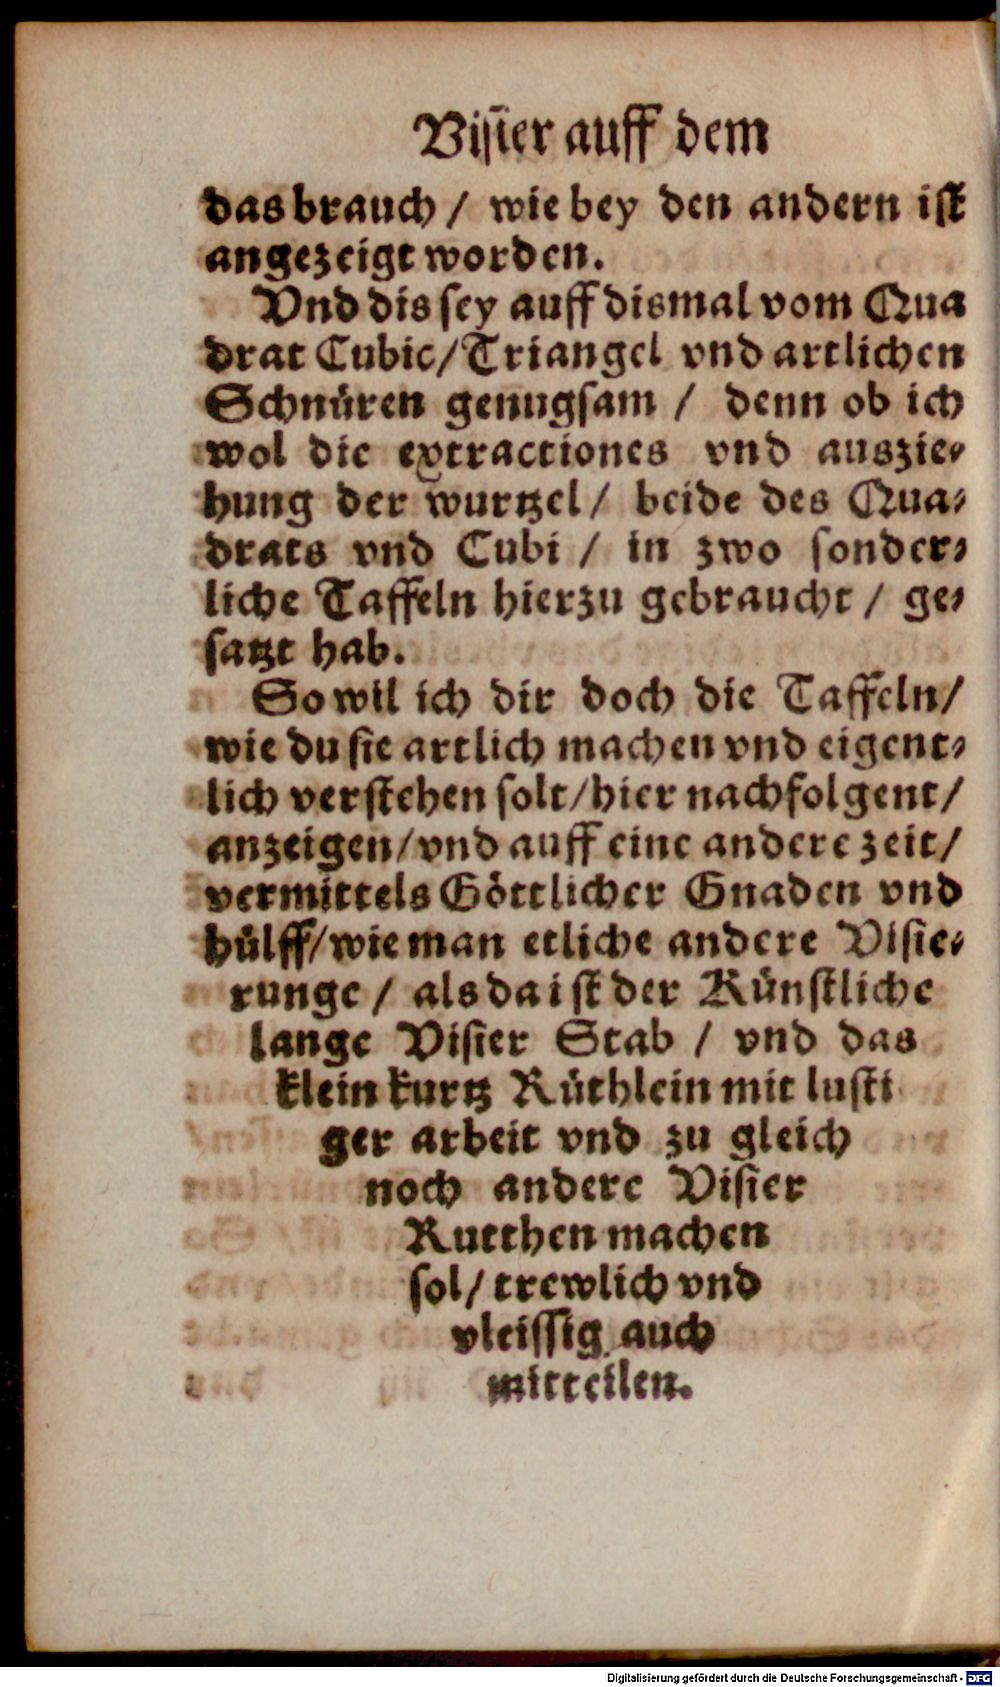 Visier auff dem
das brauch / wie bey den andern ist
angezeigt worden.
Vnd dis sey auff dismal vom Qua
drat Cubic / Triangel vnd artlichen
Schnüren genugsam / denn ob ich
wol die extractiones vnd auszie-
hung der wurtzel / beide des Qua-
drats vnd Cubi / in zwo sonder-
liche Taffeln hierzu gebraucht / ge-
satzt hab.
So wil ich dir doch die Taffeln /
wie du sie artlich machen vnd eigent-
lich verstehen solt / hier nachfolgent /
anzeigen / vnd auff eine andere zeit /
vermittels Göttlicher Gnaden vnd
hülff / wie man etliche andere Visie-
runge / als da ist der Künstliche
lange Visier Stab / vnd das
klein kurtz Rüthlein mit lusti
ger arbeit vnd zu gleich
noch andere Visier
Rutthen machen
sol / trewlich vnd
vleissig auch
mitteilen.
Digitalisierung gefördert durch die Deutsche Forschungsgemeinschaft - DFG